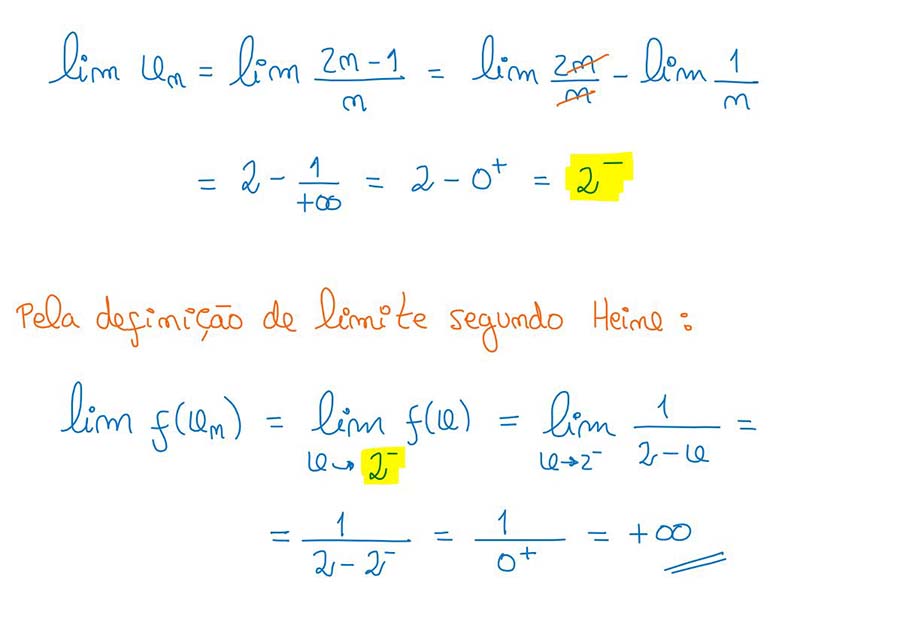 lim u_n = lim (2n-1)/n = lim 2n/n - lim 1/n
= 2 - 1/+∞ = 2 - 0⁺ = 2⁻
Pela definição de limite segundo Heine:
lim f(u_n) = lim_{u→2⁻} f(u) = lim_{u→2⁻} 1/(2-u) =
= 1/(2-2⁻) = 1/0⁺ = +∞